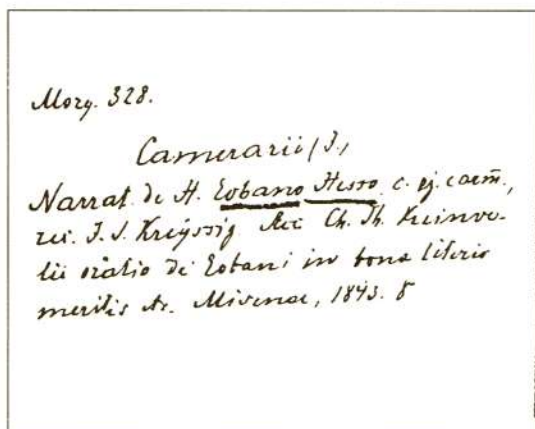 Morg. 328.
Camerarii (J.)
Narrat. de H. Eobano Hesso c. ej. carm̄.,
rec. J. T. Kreyssig. Acc. Ch. Th. Kuinoe-
lii oratio de Eobani in bonas literis
meritis etc. Misenae, 1843. 8